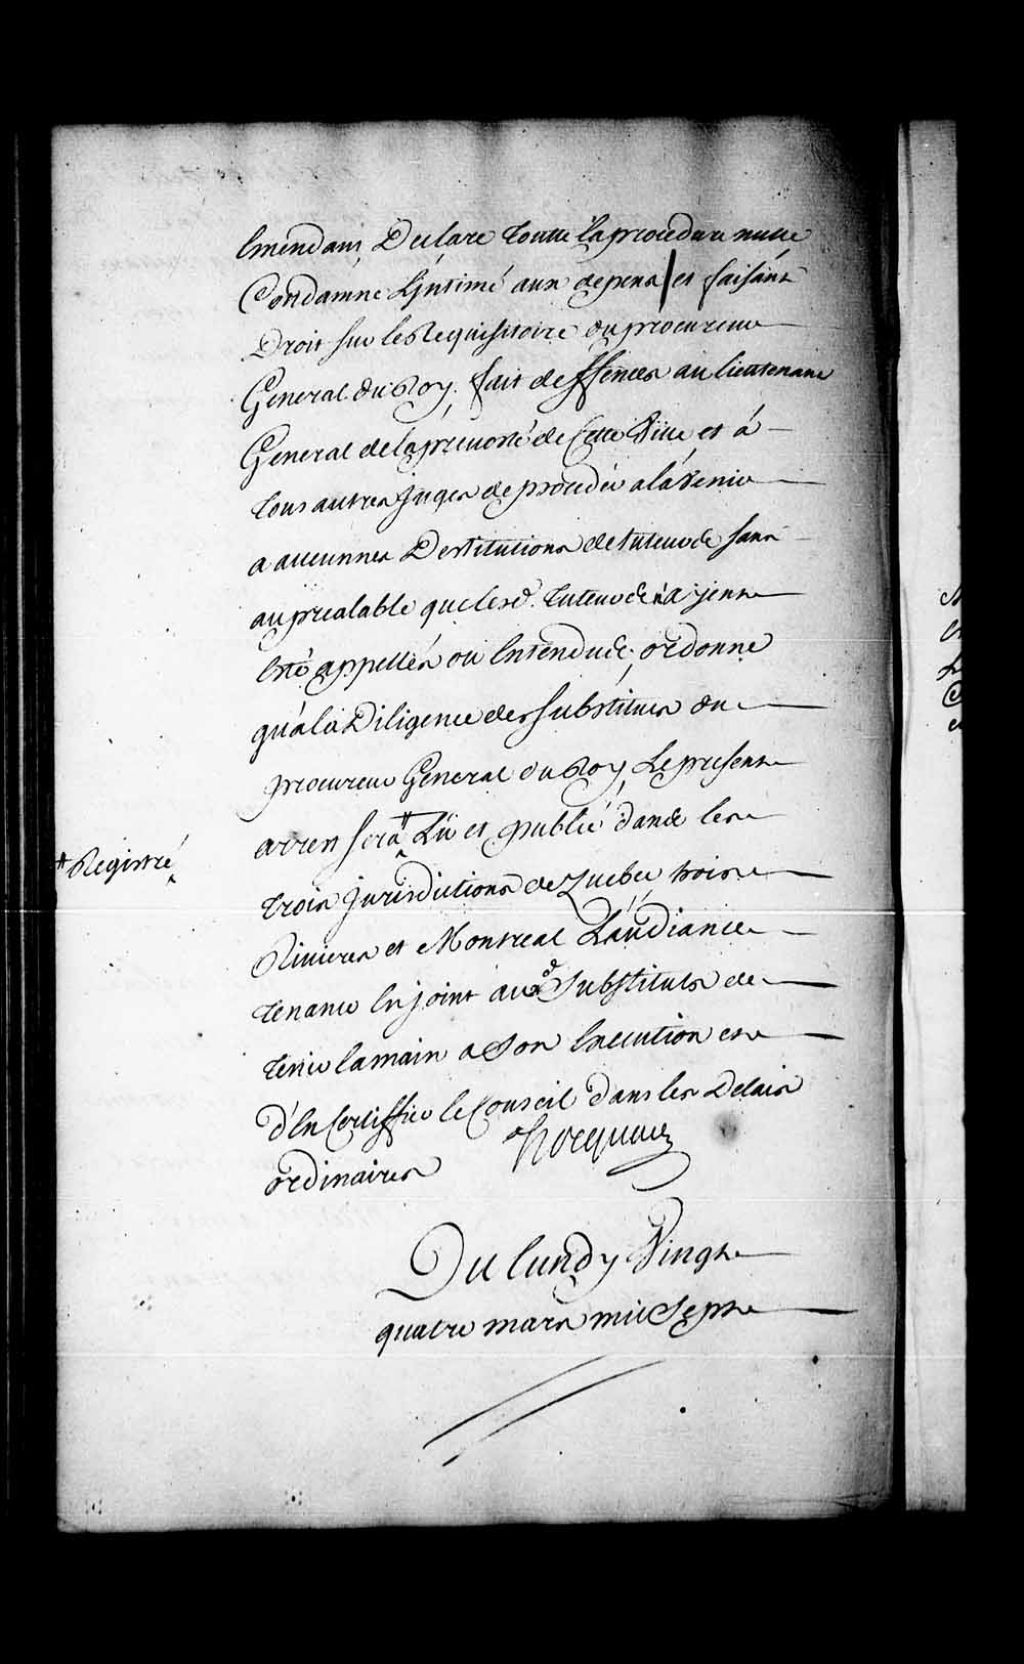 Emendant, Declare toutte la procedure nulle
Condamne L'jntimé aux depens / et faisant
Droit sur le Requisitoire du procureur
General du Roy, fait deffences au lieutenant
General de la prevosté de Cette Ville et á
tous autres juges de proceder a lávenir
a aucunnes Destitutions de tuteurs sans
au prealable que lesd. tuteurs n'ayent
Eté appellés ou Entendus, ordonne
qu'á la Diligence des substituts du
procureur General du Roy, Le present
arrest sera # Lü et publié dans les
# Registré
trois jurisdictions de Quebec, trois
Rivieres et Montreal L'audiance
tenante Enjoint aux d. Substituts de
tenir la main a Son Execution et
d'En Certiffier le Conseil dans les Delais
ordinaires
Hocquart
Du lundy Vingt
quatre mars mil Sept